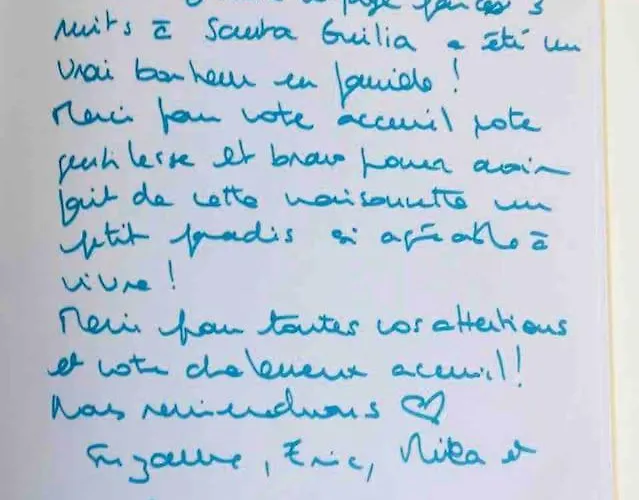 ces 3
nuits à Santa Guilia a été un
vrai bonheur en famille !
Merci pour votre acceuil votre
gentilesse et bravo pour avoir
fait de cette maisonnette un
petit paradis si agréable à
vivre !
Merci pour toutes vos attentions
et votre chaleureux acceuil !
Nous reviendrons ♡
Suzanne, Eric, Mika et